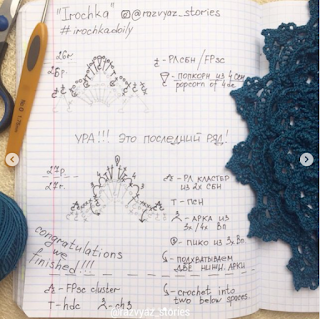 "Irochka" @razvyaz_stories
#irochkadoily
26р.
26р.
- РЛСБН/FPsc
- ПОПКОРН ИЗ 4 ССН
popcorn of 4
УРА!!! ЭТО ПОСЛЕДНИЙ РЯД!
27р.
27r.
- РЛ КЛАСТЕР
ИЗ 2Х СБН
T - ПСН
- АРКА ИЗ
3х/4х Вп
- ПИКО ИЗ 3х Вп
congratulations
we
finished!!!
- ПОДХВАТЫВАЕМ
ДВЕ НИЖН. АРКИ
- FPsc cluster
T - hdc
- ch3
- crochet into
two below spaces
@razvyaz_stories